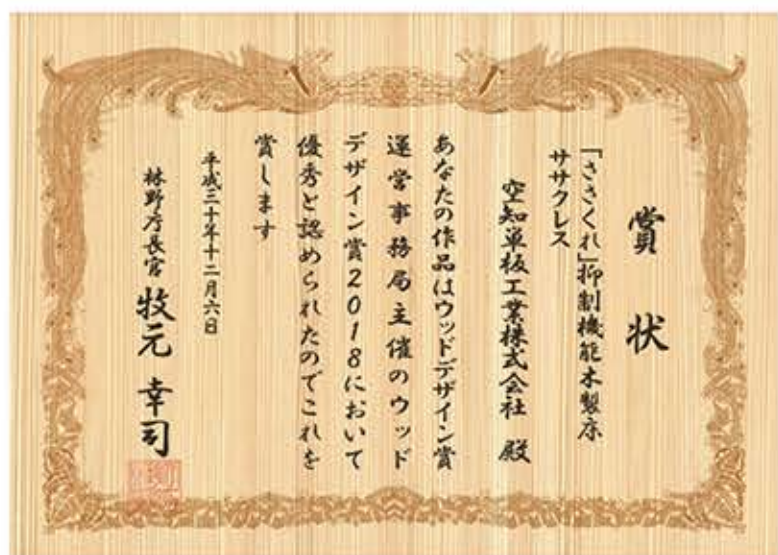 賞状
「ささくれ」抑制機能木製床
ササクレス
空知単板工業株式会社 殿
あなたの作品はウッドデザイン賞
運営事務局主催のウッド
デザイン賞2018において
優秀と認められたのでこれを
賞します
平成三十年十二月六日
林野庁長官 牧元 幸司